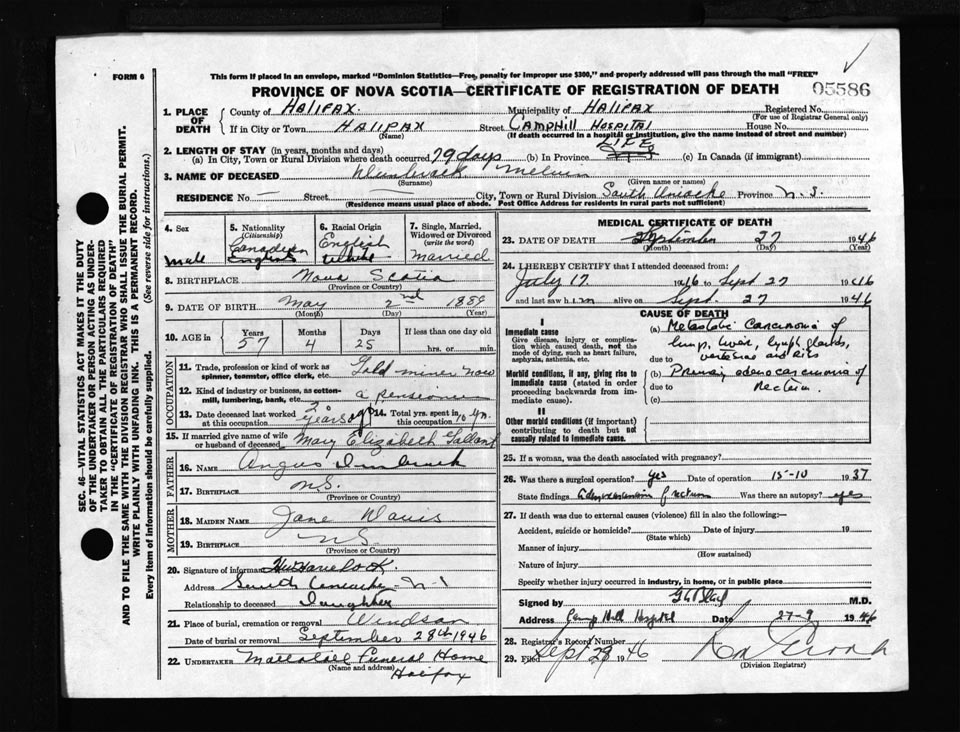 FORM 6
This form if placed in an envelope, marked "Dominion Statistics—Free, penalty for improper use $300," and properly addressed will pass through the mail "FREE"
PROVINCE OF NOVA SCOTIA—CERTIFICATE OF REGISTRATION OF DEATH
05586
1. PLACE OF DEATH
County of HALIFAX. Municipality of HALIFAX Registered No.
(For use of Registrar General only)
If in City or Town HALIFAX Street CAMPHILL HOSPITAL House No.
(Name) (If death occurred in a hospital or institution, give the name instead of street and number)
2. LENGTH OF STAY (in years, months and days)
(a) In City, Town or Rural Division where death occurred 79 days (b) In Province LIFE (c) In Canada (if immigrant)
3. NAME OF DECEASED
(Surname) (Given name or names)
RESIDENCE No. Street City, Town or Rural Division South Uniacke Province N.S.
(Residence means usual place of abode. Post Office Address for residents in rural parts not sufficient)
4. Sex
male
5. Nationality
(Citizenship)
Canadian
English
6. Racial Origin
English
White
7. Single, Married, Widowed or Divorced
(write the word)
Married
8. BIRTHPLACE Nova Scotia
(Province or Country)
9. DATE OF BIRTH May 2nd 1889
(Month) (Day) (Year)
10. AGE in
Years Months Days If less than one day old
57 4 25 hrs. or min.
OCCUPATION
11. Trade, profession or kind of work as spinner, teamster, office clerk, etc. Gold miner now
12. Kind of industry or business, as cotton-mill, lumbering, bank, etc. a pensioner
13. Date deceased last worked at this occupation 2 years ago
14. Total yrs. spent in this occupation 10 yrs.
15. If married give name of wife or husband of deceased Mary Elizabeth Gallant
FATHER
16. NAME Angus
17. BIRTHPLACE N.S.
(Province or Country)
MOTHER
18. MAIDEN NAME Jane Davis
19. BIRTHPLACE N.S.
(Province or Country)
20. Signature of informant
Address South Uniacke N.S.
Relationship to deceased Daughter
21. Place of burial, cremation or removal Windsor
Date of burial or removal September 28th 1946
22. UNDERTAKER Funeral Home
(Name and address) Halifax
MEDICAL CERTIFICATE OF DEATH
23. DATE OF DEATH September 27 1946
(Month) (Day) (Year)
24. I HEREBY CERTIFY that I attended deceased from:
July 17 1946 to Sept 27 1946
and last saw him alive on Sept. 27 1946
CAUSE OF DEATH
I
Immediate cause
Give disease, injury or complication which caused death, not the mode of dying, such as heart failure, asphyxia, asthenia, etc.
(a) Metastatic Carcinoma of
lungs, liver, lymph glands,
due to vertebrae and Ribs
Morbid conditions, if any, giving rise to immediate cause (stated in order proceeding backwards from immediate cause).
(b) Primary adenocarcinoma of
due to rectum.
(c)
II
Other morbid conditions (if important) contributing to death but not causally related to immediate cause.
25. If a woman, was the death associated with pregnancy?
26. Was there a surgical operation? yes Date of operation 15-10 1937
State findings Adenocarcinoma of rectum Was there an autopsy? yes
27. If death was due to external causes (violence) fill in also the following:—
Accident, suicide or homicide? Date of injury 19
(State which)
Manner of injury
(How sustained)
Nature of injury
Specify whether injury occurred in industry, in home, or in public place
Signed by M.D.
Address Camp Hill Hospital Date 27-9 1946
28. Registrar's Record Number
29. Filed Sept 28 1946
(Division Registrar)
SEC. 46—VITAL STATISTICS ACT MAKES IT THE DUTY
OF THE UNDERTAKER OR PERSON ACTING AS UNDER-
TAKER TO OBTAIN ALL THE PARTICULARS REQUIRED
IN THE "CERTIFICATE OF REGISTRATION OF DEATH"
AND TO FILE THE SAME WITH THE DIVISION REGISTRAR WHO SHALL ISSUE THE BURIAL PERMIT.
WRITE PLAINLY WITH UNFADING INK. THIS IS A PERMANENT RECORD.
Every item of information should be carefully supplied. (See reverse side for instructions.)